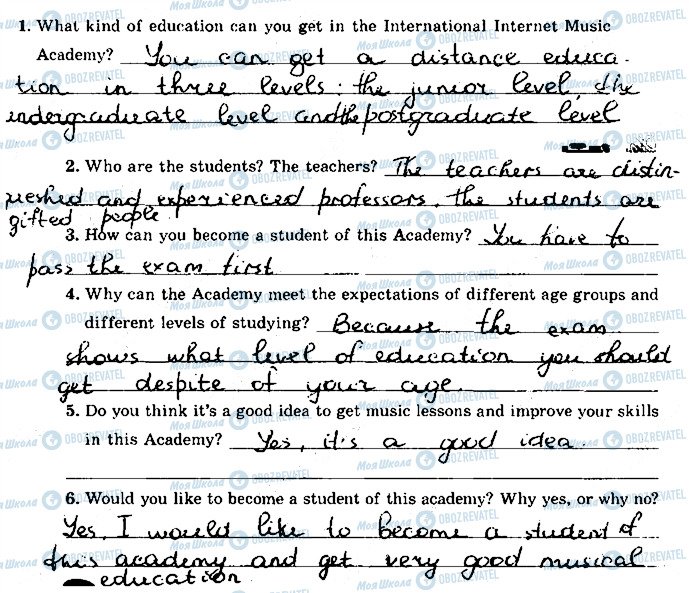 1. What kind of education can you get in the International Internet Music
Academy? You can get a distance educa-
tion in three levels: the junior level, the
undergraduate level and the postgraduate level
2. Who are the students? The teachers? The teachers are distin-
guished and experienced professors. The students are
gifted people
3. How can you become a student of this Academy? You have to
pass the exam first
4. Why can the Academy meet the expectations of different age groups and
different levels of studying? Because the exam
shows what level of education you should
get despite of your age.
5. Do you think it's a good idea to get music lessons and improve your skills
in this Academy? Yes, it's a good idea.
6. Would you like to become a student of this academy? Why yes, or why no?
Yes, I would like to become a student of
this academy and get very good musical
education